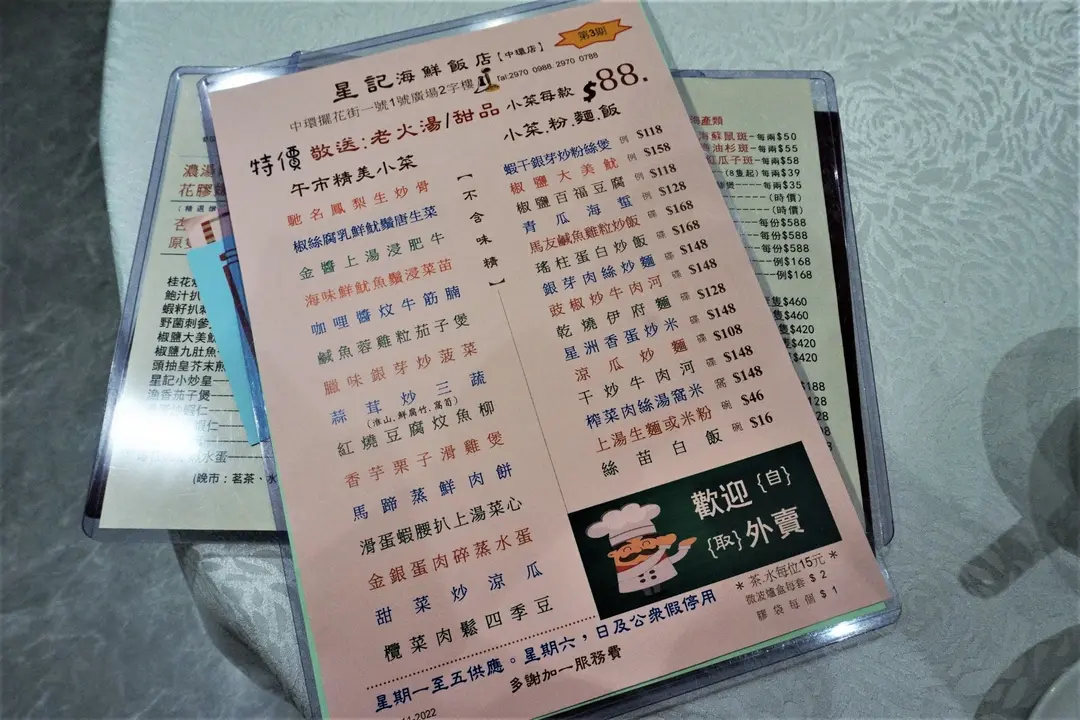 星記海鮮飯店【中環店】
第3期
中環擺花街一號1號廣場2字樓
Tel.2970 0988. 2970 0788
特價
敬送:老火湯/甜品
小菜每款 $88.
午市精美小菜
【不含味精】
馳名鳳梨生炒骨
椒絲腐乳鮮魷鬚唐生菜
金醬上湯浸肥牛
海味鮮魷魚鬚浸菜苗
咖哩醬炆牛筋腩
鹹魚蓉雞粒茄子煲
臘味銀芽炒菠菜
蒜茸炒三蔬
(淮山.鮮腐竹.萵筍)
紅燒豆腐炆魚柳
香芋栗子滑雞煲
馬蹄蒸鮮肉餅
滑蛋蝦腰扒上湯菜心
金銀蛋肉碎蒸水蛋
甜菜炒涼瓜
欖菜肉鬆四季豆
小菜.粉.麵.飯
蝦干銀芽炒粉絲煲 例 $118
椒鹽大美魷 例 $158
椒鹽百福豆腐 例 $118
青瓜海蜇 例 $128
馬友鹹魚雞粒炒飯 碟 $168
瑤柱蛋白炒飯 碟 $168
銀芽肉絲炒麵 碟 $148
豉椒炒牛肉河 碟 $148
乾燒伊府麵 碟 $128
星洲香蛋炒米 碟 $148
涼瓜炒麵 碟 $108
干炒牛肉河 碟 $148
榨菜肉絲湯窩米 窩 $148
上湯生麵或米粉 碗 $46
絲苗白飯 碗 $16
歡迎{自}
{取}外賣
*茶.水每位15元*
微波爐盒每套 $2
膠袋每個 $1
星期一至五供應。星期六，日及公眾假停用
多謝加一服務費
11-2022
濃湯
花膠
原
桂花
鮑汁扒
蝦籽扒
野菌刺參
椒鹽大美魷
椒鹽九肚魚
頭抽皇芥末煎
星記小炒皇
漁香茄子煲
蝦仁
水蛋
(晚市：茗茶、水
海產類
海蘇鼠斑-每兩$50
油杉斑-每兩$55
紅瓜子斑-每兩$58
(8隻起)-每兩$39
煲-每兩$35
(時價)
(時價)
每份$588
每份$588
每份$588
例$168
例$168
隻$460
隻$460
$420
$420
$420
$188